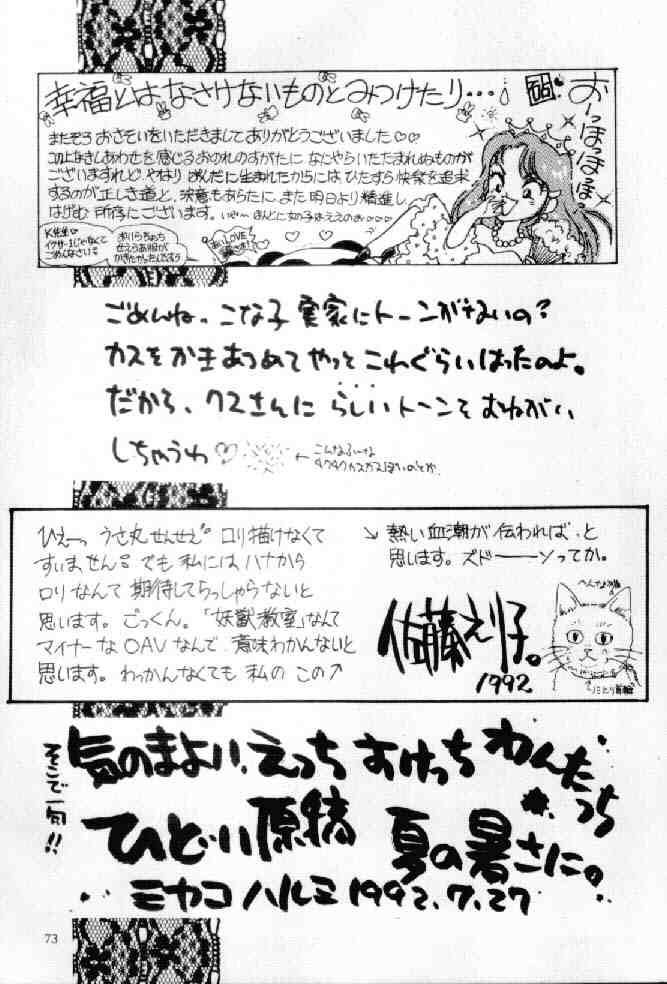 幸福とはなさけないものとみつけたり…!
おーっほっほっほ
またぞろおさそいをいただきましてありがとうございました♡♡
このよなきしあわせを感じるおのれのすがたに なにやらいたたまれぬものが
ございますれど、やはり おんなに生まれたからには ひたすら快楽を追求
するのが正しき道と、決意もあらたに、また明日より精進し
はげむ所存にございます。いやーほんとに女の子はええのお○○○○
K先生♡
イクサー1じゃなくて
ごめんなさい
おいらちゃっち
せえらあ服が
かきたかったんですう
LOVE
ごめんね。こな子 実家にトーンがないの?
カスをかきあつめてやっとこれぐらいはったのよ。
だから、クスさんに らしいトーンを おねがい
しちゃうわ♡
←こんなふーな
ひえーっ うさ丸せんせえ。ロリ描けなくて
すいません。でも私にはハナから
ロリなんて期待してらっしゃらないと
思います。ごっくん。「妖獣教室」なんて
マイナーなOAVなんで、意味わかんないと
思います。わっかんなくても 私の この↗
↘ 熱い血潮が伝われば、と
思います。ズドーーーンってか。
佐藤えり子。
1992
へんなお顔
そこで一句!!
気のまよい、えっち すけっち わんたっち
ひどい原稿 夏の暑さに。
ミヤコハルミ 1992.7.27
73